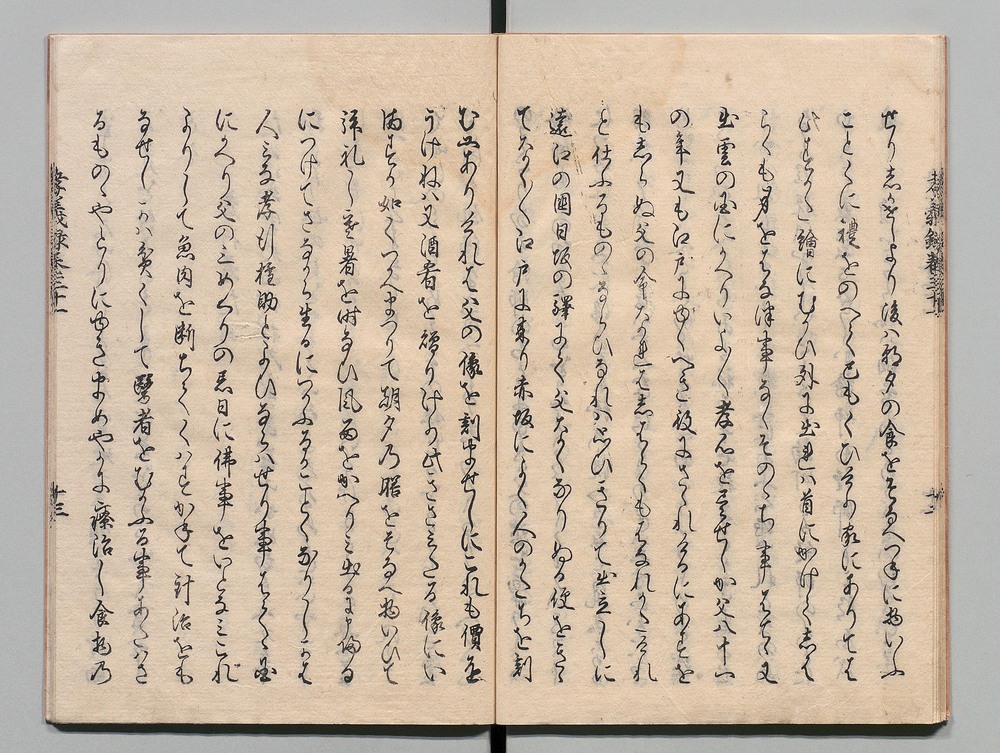 孝義録巻三十一
せり志かしより後ハ朝夕の食をそなへつ年に物いふ
ことくに禮をのへく己もくひその家にありてを
ひすらく繪にむかひ外に出連ハ首にかけく志を
らくも身をはな津事なくそのゝち事はてゝ又
出雲の国にかへりいよく孝心を尽せしか父八十一
の年又も江戸にゆくへき役にさゝれけるにあとを
も志らぬ父の年なれは志はらくもはなれかたけれ
と仕ふるものゝならひなれハ思ひきりて出立しに
遠江の国日坂の驛にて父なくなりぬる便をきゝ
てなくく江戸に来り赤坂によく人のかたちを刻
む工ありけれは父の像を刻ませしにこれも價を
うけねハ又酒肴を贈りけり此きさミたる像にい
ますか如くつかへまつりて朝夕乃膳をそなへ物いひて
拝礼し寒暑を時なひ風雨をかへりミ出るより帰る
につけてさなから生るにつかふることくなりしかは
人ミな孝行権助とよひならハせり事はてゝ国
にかへり父の三めくりの忌日に佛事をいとなミこれ
よりして魚肉を断ちてくハすかねて針治をも
なせしかハ貧くして醫者をむかふる事あたハさ
るものゝやとりにゆきまめやかに療治し食物乃
孝義録巻三十一
十三